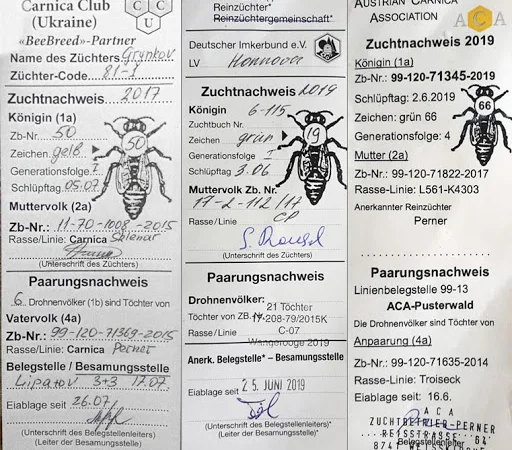 Carnica Club
(Ukraine)
«BeeBreed»-Partner
C C
U
Name des Züchters
Züchter-Code 81-1
Zuchtnachweis 2017
Königin (1a)
Zb-Nr.: 50
Zeichen gelb
50
Generationsfolge
Schlüpftag 05.07
Muttervolk (2a)
Zb-Nr.: 11-70-1008-2015
Rasse/Linie: Carnica Sklenar
(Unterschrift des Züchters)
Paarungsnachweis
6 Drohnenvölker (1b) sind Töchter von
Vatervolk (4a)
Zb-Nr.: 99-120-71369-2015
Rasse/Linie: Carnica Perner
Belegstelle / Besamungsstelle
Lipatov 3+3 17.07.
Eiablage seit 26.07
(Unterschrift des Belegstellenleiters)
(Leiter der Besamungsstelle)
Reinzüchter
Reinzüchtergemeinschaft*
Deutscher Imkerbund e.V.
LV Hannover
Zuchtnachweis 2019
Königin 6-115
Zuchtbuch Nr.
Zeichen grün
19
Generationsfolge I
Schlüpftag 3.06
Muttervolk Zb. Nr.
17-2-112 117
Rasse/Linie CP
(Unterschrift des Züchters)
Paarungsnachweis
Drohnenvölker:
21 Töchter
Töchter von ZB. Nr. 208-79/2015K
Rasse/Linie C-07
Wangerooge 2019
Anerk. Belegstelle* – Besamungsstelle
Eiablage seit 25. JUNI 2019
(Unterschrift des Belegstellenleiters)*
(Leiter der Besamungsstelle)*
AUSTRIAN CARNICA
ASSOCIATION
ACA
Zuchtnachweis 2019
Königin (1a)
Zb-Nr.: 99-120-71345-2019
Schlüpftag: 2.6.2019
Zeichen: grün 66
66
Generationsfolge: 4
Mutter (2a)
Zb-Nr.: 99-120-71822-2017
Rasse-Linie: L561-K4303
Anerkannter Reinzüchter
Perner
Paarungsnachweis
Linienbelegstelle 99-13
ACA-Pusterwald
Die Drohnenvölker sind Töchter von
Anpaarung (4a)
Zb-Nr.: 99-120-71635-2014
Rasse-Linie: Troiseck
Eiablage seit: 16.6.
A C A
ZUCHTBETRIEB-PERNER
REISSTRASSE 64
Belegstellenleiter